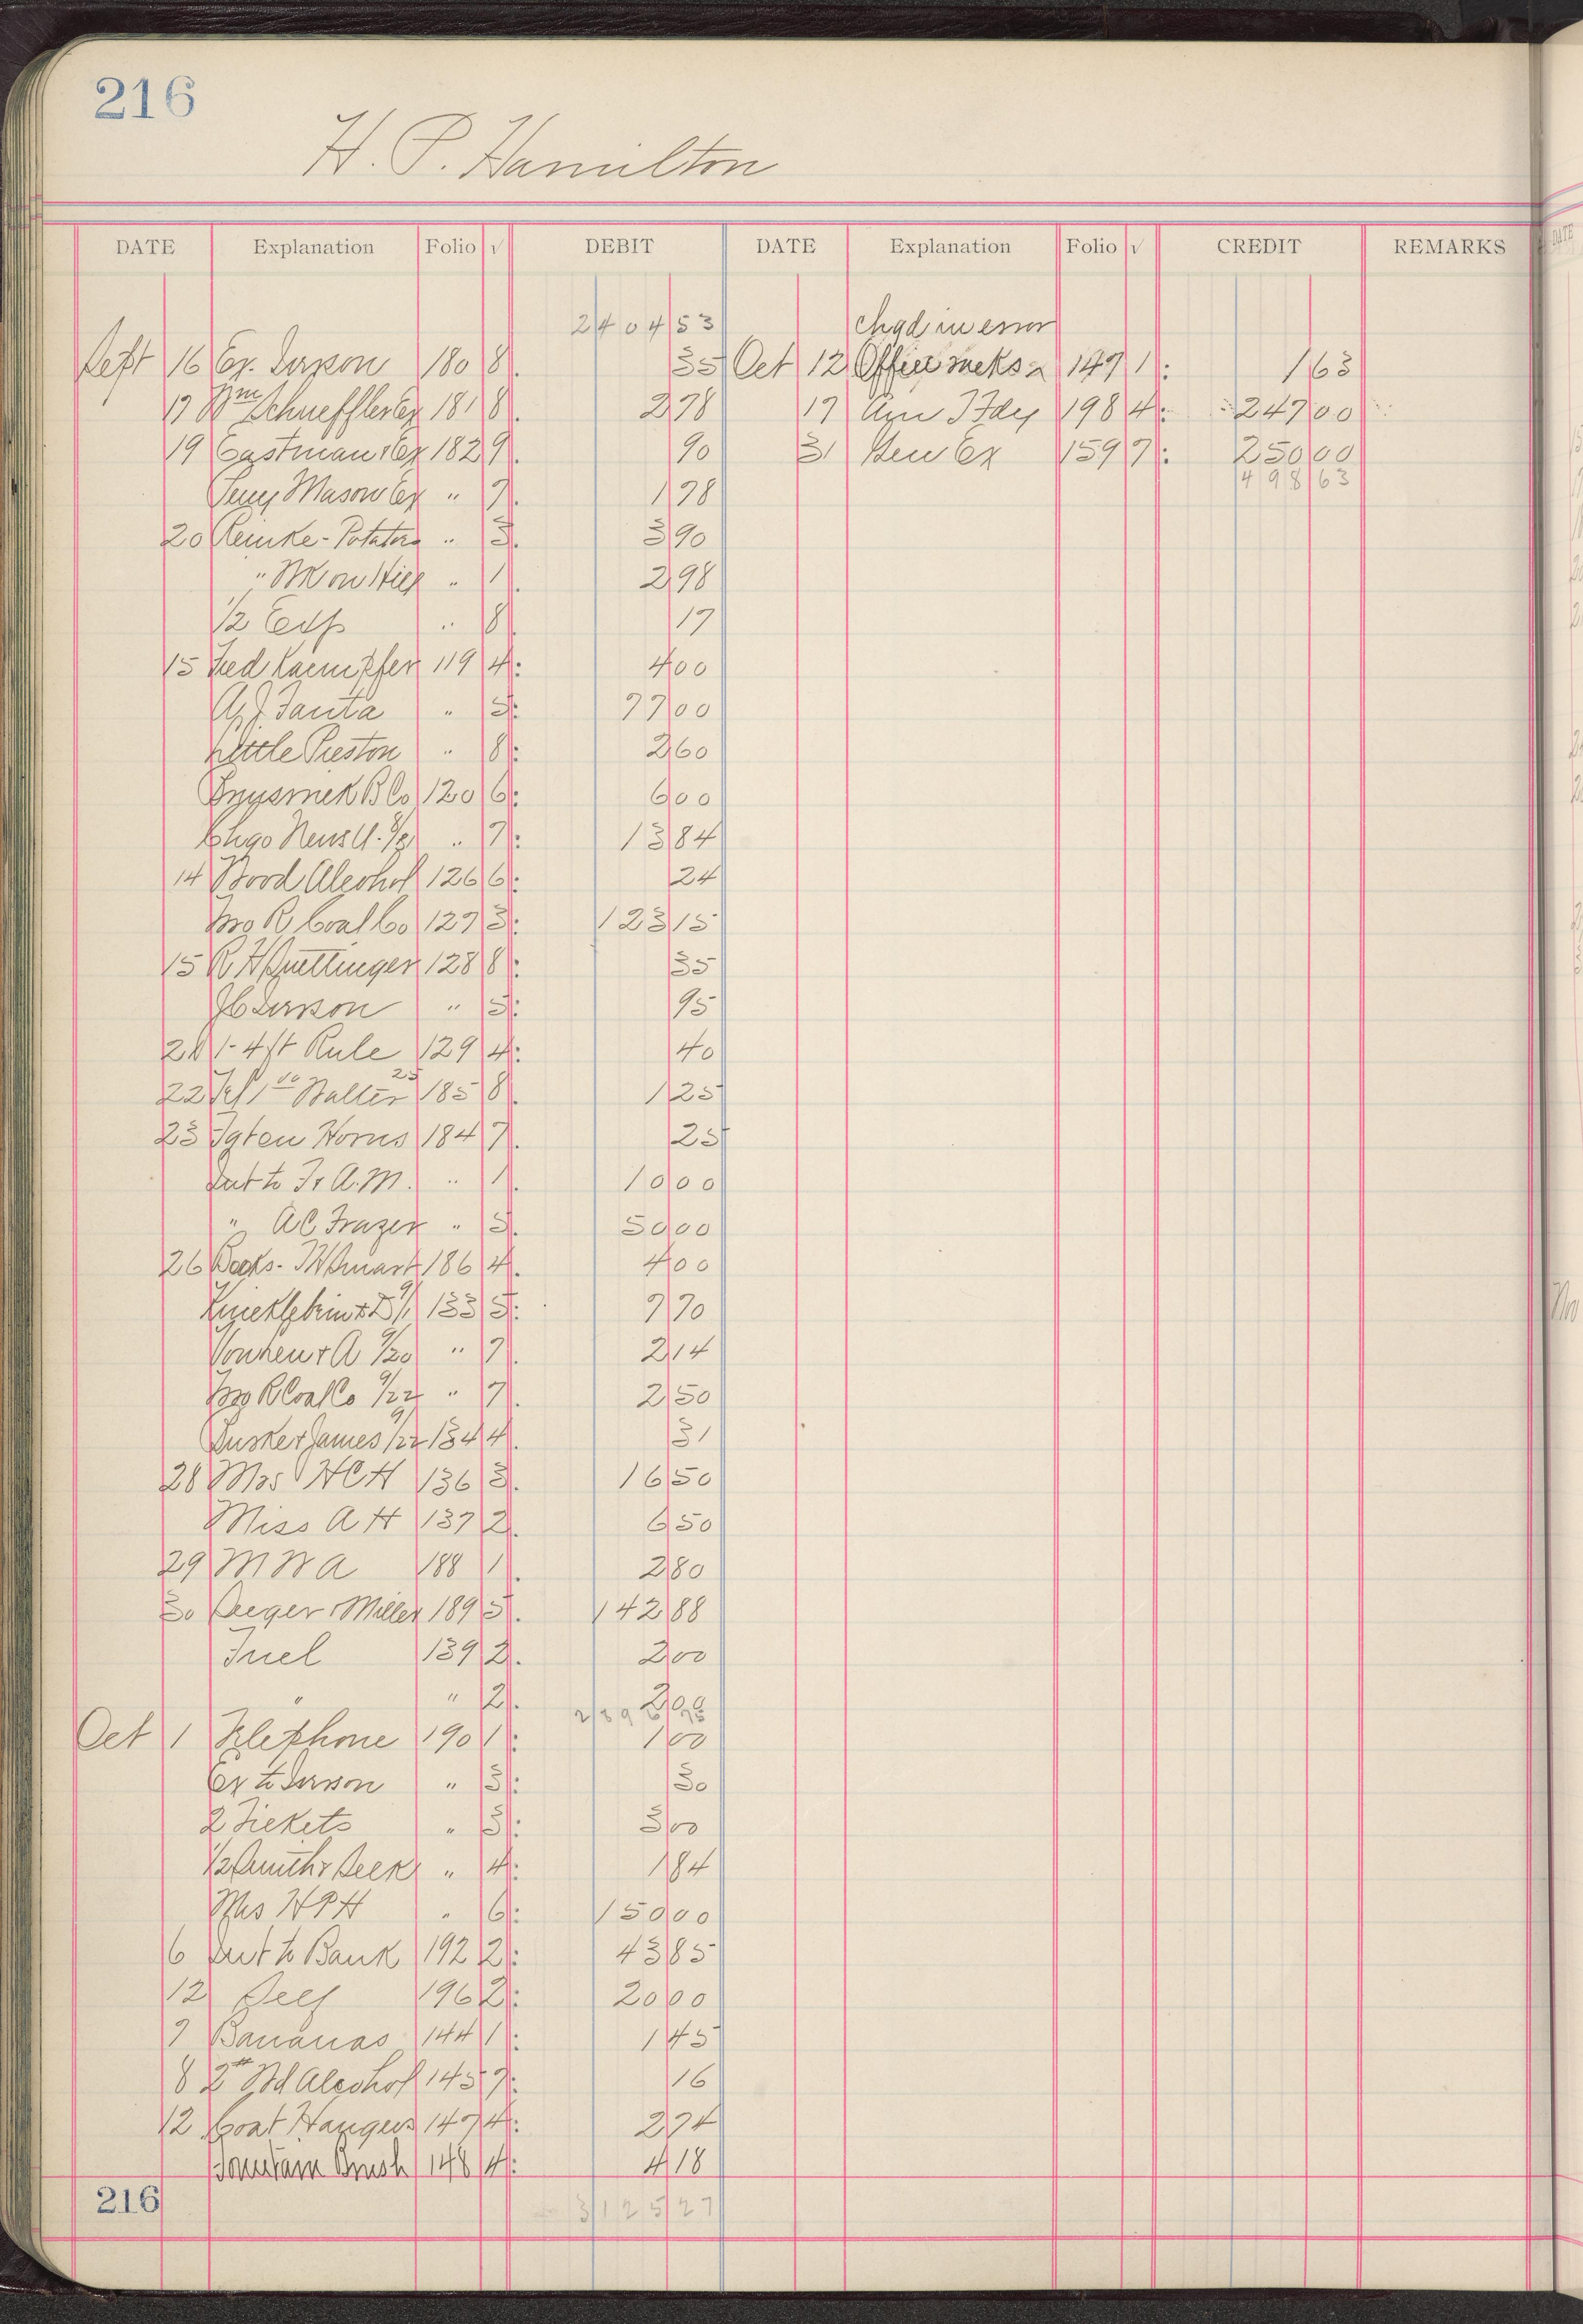 216
H. P. Hamilton
DATE Explanation Folio √ DEBIT DATE Explanation Folio √ CREDIT REMARKS
2404 53 Chgd in error
Sept 16 Ex. 180 8. 35 Oct 12 Office 147 1: 1 63
17 Wm Schueffler Ex 181 8. 2 78 17 198 4: 247 00
19 Eastman Ex 182 9. 90 31 Gen Ex 159 7: 250 00
Mason Ex " 7. 1 78 498 63
20 Reinke - Potatoes " 3. 3 90
" " 1. 2 98
1/2 Exp " 8 17
15 Fred Kaempfer 119 4: 4 00
A. J. Fanta " 5: 77 00
Little Preston " 8: 2 60
B Co 120 6: 6 00
Chgo News " 7: 13 84
14 Wood Alcohol 126 6: 24
R Coal Co 127 3: 123 15
15 R H 128 8: 35
J C " 5: 95
21 1 - 4 ft Rule 129 4: 40
22 Tel 1 00 Walter 25 185 8. 1 25
23 Horns 184 7. 25
Int to Fr A. M. " 1. 10 00
" A C Frazer " 5. 50 00
26 Books - 186 4. 4 00
9/1 133 5: 7 70
Vonhen & A 9/20 " 7. 2 14
R Coal Co 9/22 " 7. 2 50
James 9/22 134 4. 31
28 Mrs H C H 136 3. 16 50
Miss A H 137 2. 6 50
29 M W A 188 1. 2 80
30 Seeger Miller 189 5. 142 88
Fuel 139 2. 2 00
" " 2. 2 00
Oct 1 Telephone 190 1: 1 00
Ex to " 3: 30
2 Tickets " 3: 3 00
1/2 " 4: 1 84
Mrs H P H " 6: 150 00
6 Int to Bank 192 2: 43 85
12 Self 196 2: 20 00
7 Bananas 144 1: 1 45
8 2# Wd Alcohol 145 7: 16
12 Coat Hangers 147 4: 2 74
Fountain Brush 148 4: 4 18
216 3125 27